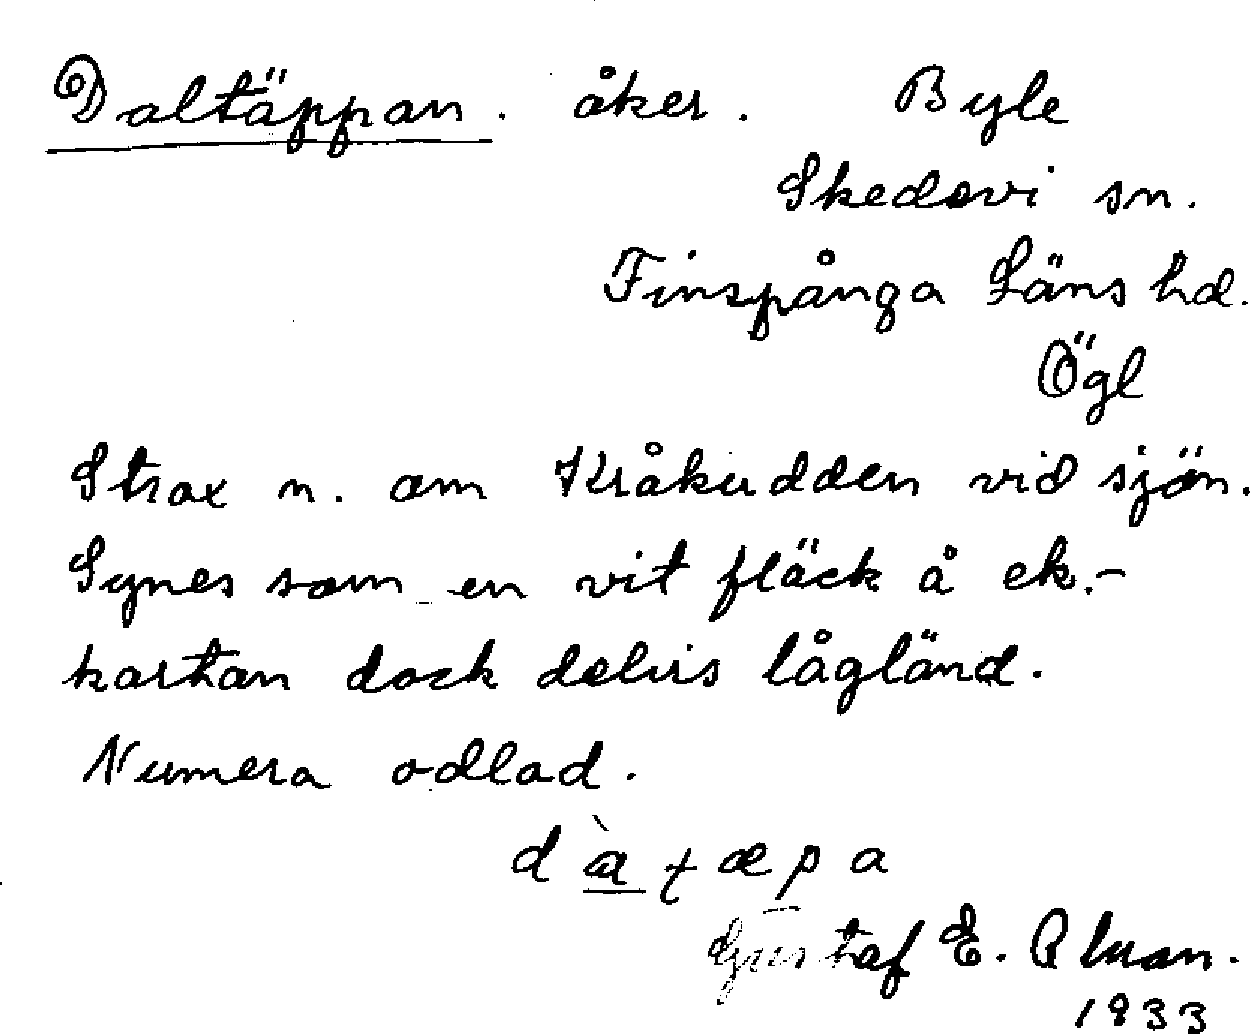 Daltäppan. åker. Byle
Skedevi sn.
Finspånga Läns hd.
Ögl
Strax n. om Kråkudden vid sjön.
Synes som en vit fläck å ek.-
kartan dock delvis lågländ.
Numera odlad.
d à t æ p a
Gustaf E.
1933